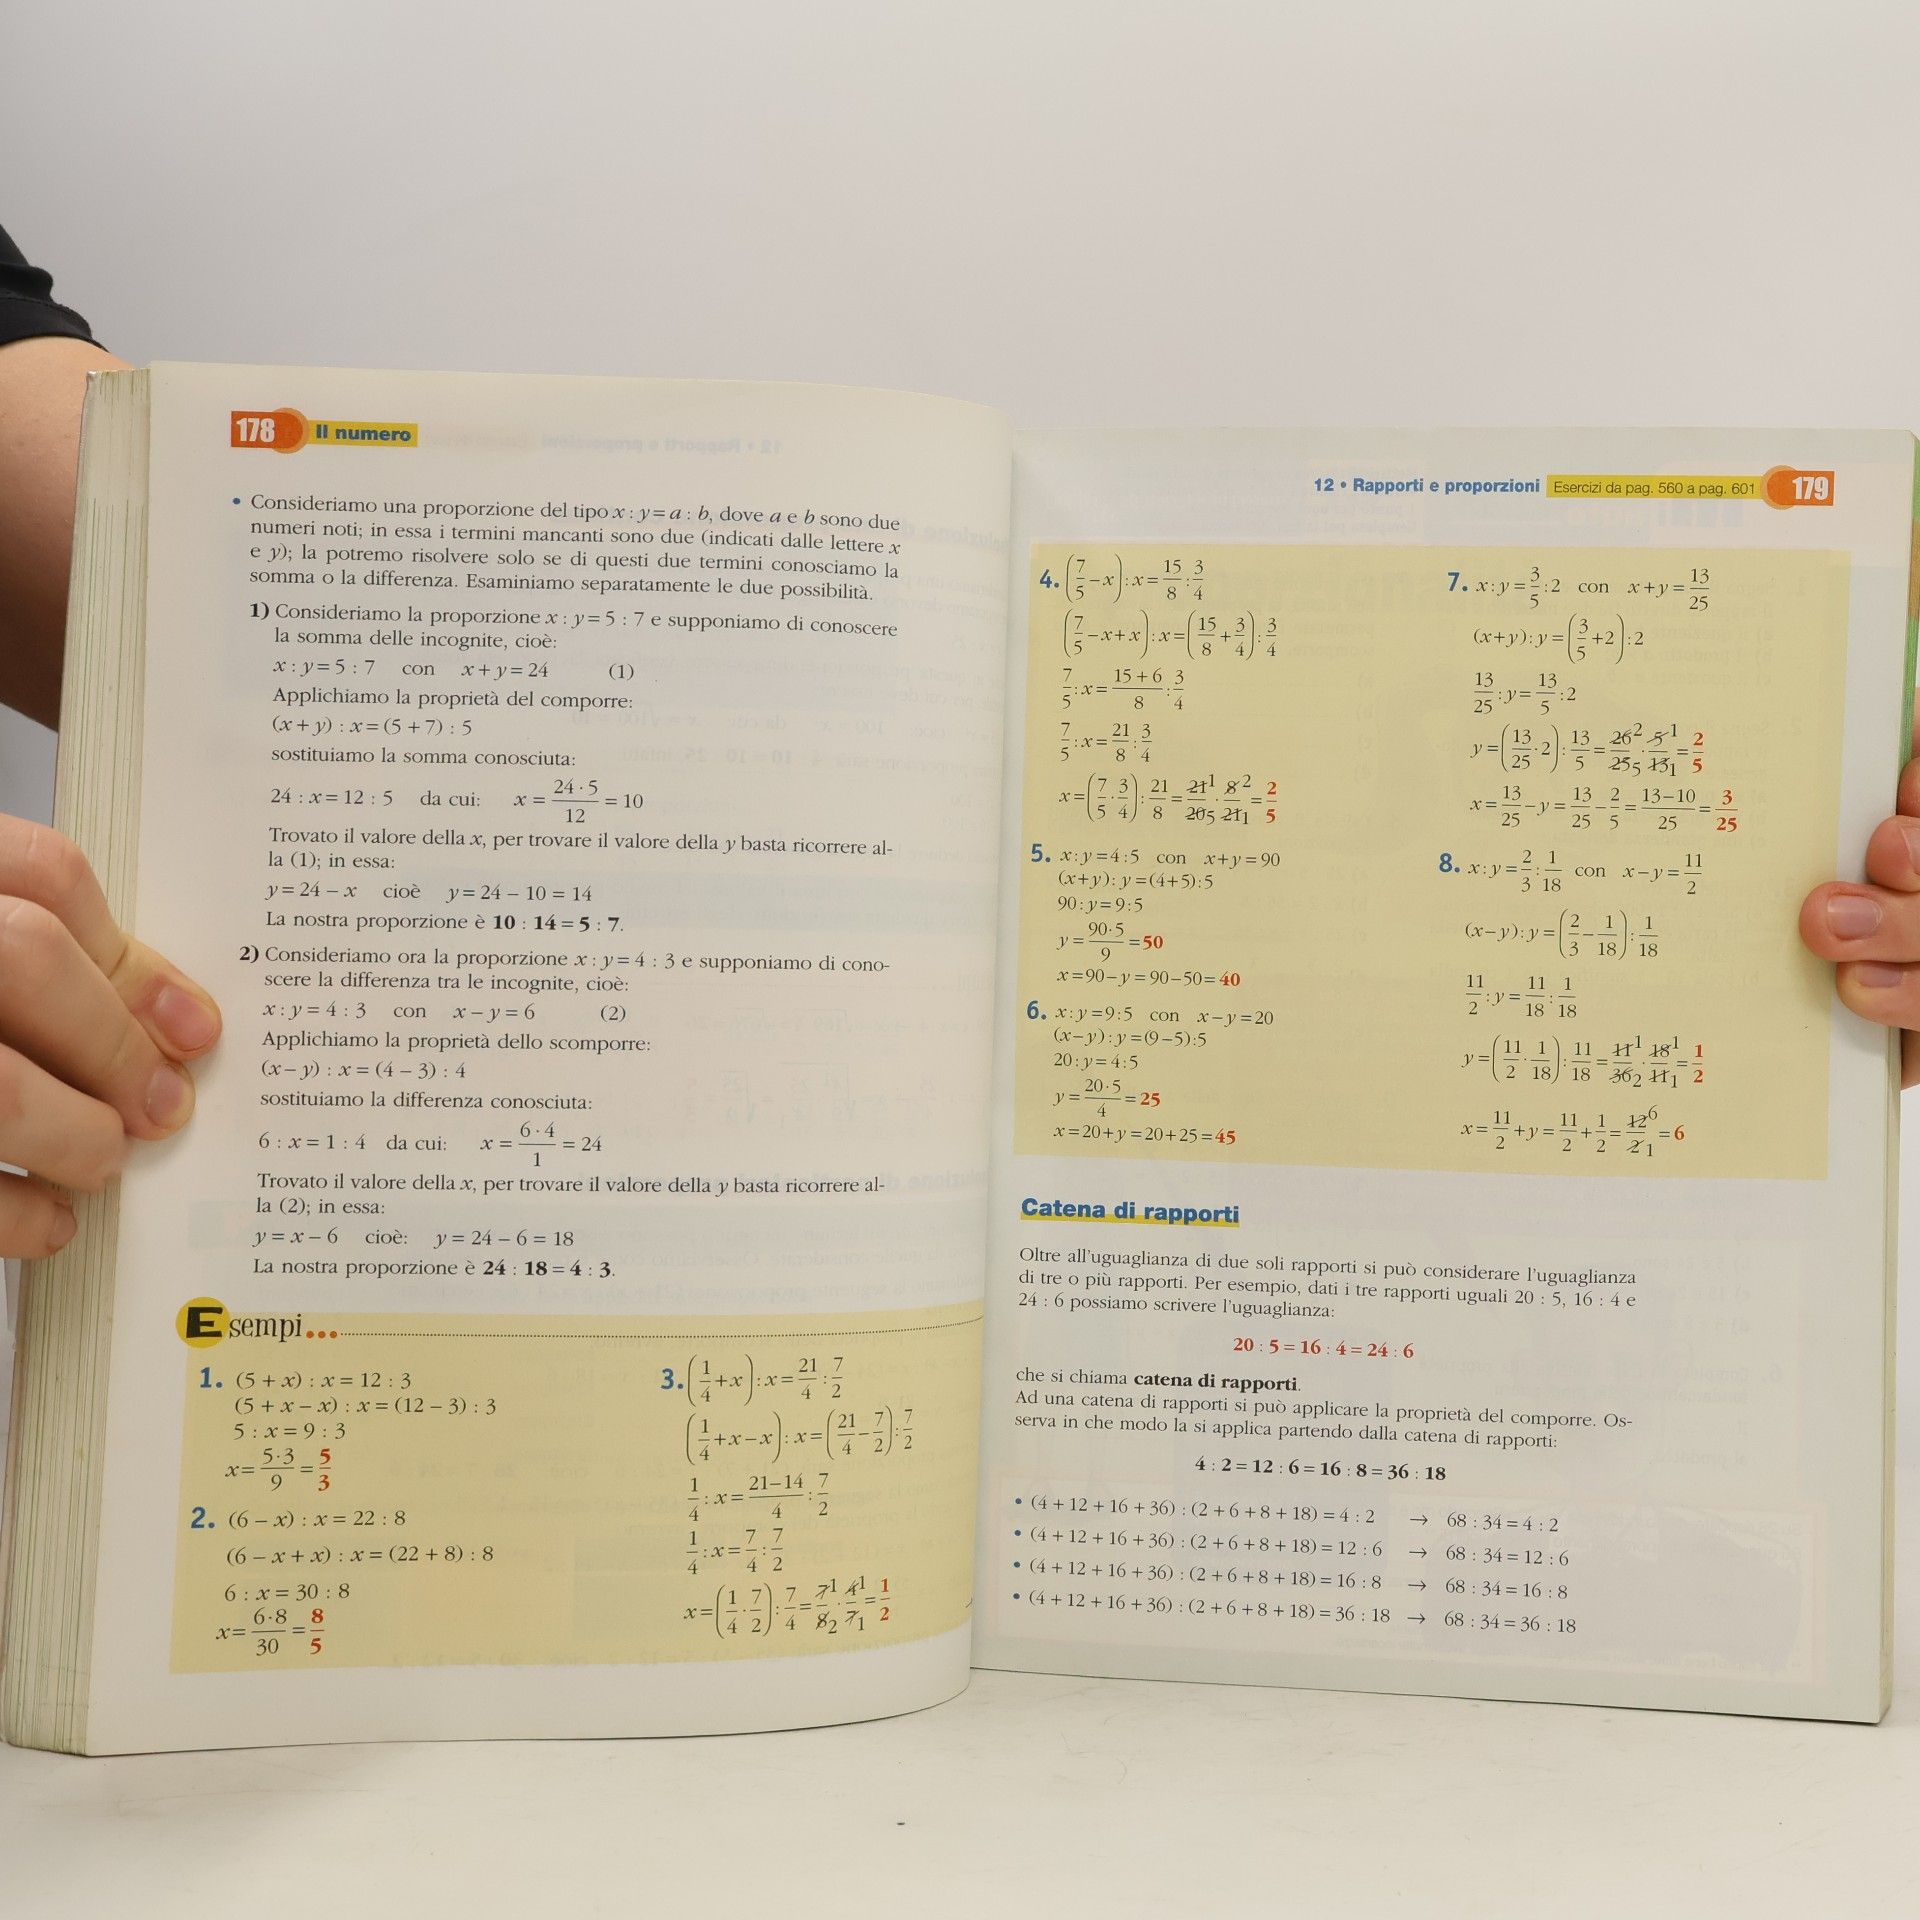 178 Il numero
• Consideriamo una proporzione del tipo x : y = a : b, dove a e b sono due
numeri noti; in essa i termini mancanti sono due (indicati dalle lettere x
e y); la potremo risolvere solo se di questi due termini conosciamo la
somma o la differenza. Esaminiamo separatamente le due possibilità.
1) Consideriamo la proporzione x : y = 5 : 7 e supponiamo di conoscere
la somma delle incognite, cioè:
x : y = 5 : 7 con x + y = 24 (1)
Applichiamo la proprietà del comporre:
(x + y) : x = (5 + 7) : 5
sostituiamo la somma conosciuta:
24 : x = 12 : 5 da cui: x = 24 · 5 / 12 = 10
Trovato il valore della x, per trovare il valore della y basta ricorrere al-
la (1); in essa:
y = 24 – x cioè y = 24 – 10 = 14
La nostra proporzione è 10 : 14 = 5 : 7.
2) Consideriamo ora la proporzione x : y = 4 : 3 e supponiamo di cono-
scere la differenza tra le incognite, cioè:
x : y = 4 : 3 con x – y = 6 (2)
Applichiamo la proprietà dello scomporre:
(x – y) : x = (4 – 3) : 4
sostituiamo la differenza conosciuta:
6 : x = 1 : 4 da cui: x = 6 · 4 / 1 = 24
Trovato il valore della x, per trovare il valore della y basta ricorrere al-
la (2); in essa:
y = x – 6 cioè: y = 24 – 6 = 18
La nostra proporzione è 24 : 18 = 4 : 3.
Esempi...
1. (5 + x) : x = 12 : 3
(5 + x – x) : x = (12 – 3) : 3
5 : x = 9 : 3
x = 5·3 / 9 = 5/3
2. (6 – x) : x = 22 : 8
(6 – x + x) : x = (22 + 8) : 8
6 : x = 30 : 8
x = 6·8 / 30 = 8/5
3. (1/4 + x) : x = 21/4 : 7/2
(1/4 + x – x) : x = (21/4 – 7/2) : 7/2
1/4 : x = 21–14 / 4 : 7/2
1/4 : x = 7/4 : 7/2
x = (1/4 · 7/2) : 7/4 = 7 1 / 8 2 · 4 1 / 7 1 = 1/2
12 • Rapporti e proporzioni Esercizi da pag. 560 a pag. 601 179
4. (7/5 – x) : x = 15/8 : 3/4
(7/5 – x + x) : x = (15/8 + 3/4) : 3/4
7/5 : x = 15 + 6 / 8 : 3/4
7/5 : x = 21/8 : 3/4
x = (7/5 · 3/4) : 21/8 = 21 1 / 20 5 · 8 2 / 21 1 = 2/5
5. x : y = 4 : 5 con x + y = 90
(x + y) : y = (4 + 5) : 5
90 : y = 9 : 5
y = 90·5 / 9 = 50
x = 90 – y = 90 – 50 = 40
6. x : y = 9 : 5 con x – y = 20
(x – y) : y = (9 – 5) : 5
20 : y = 4 : 5
y = 20·5 / 4 = 25
x = 20 + y = 20 + 25 = 45
7. x : y = 3/5 : 2 con x + y = 13/25
(x + y) : y = (3/5 + 2) : 2
13/25 : y = 13/5 : 2
y = (13/25 · 2) : 13/5 = 26 2 / 25 5 · 5 1 / 13 1 = 2/5
x = 13/25 – y = 13/25 – 2/5 = 13–10 / 25 = 3/25
8. x : y = 2/3 : 1/18 con x – y = 11/2
(x – y) : y = (2/3 – 1/18) : 1/18
11/2 : y = 11/18 : 1/18
y = (11/2 · 1/18) : 11/18 = 11 1 / 36 2 · 18 1 / 11 1 = 1/2
x = 11/2 + y = 11/2 + 1/2 = 12 6 / 2 1 = 6
Catena di rapporti
Oltre all'uguaglianza di due soli rapporti si può considerare l'uguaglianza
di tre o più rapporti. Per esempio, dati i tre rapporti uguali 20 : 5, 16 : 4 e
24 : 6 possiamo scrivere l'uguaglianza:
20 : 5 = 16 : 4 = 24 : 6
che si chiama catena di rapporti.
Ad una catena di rapporti si può applicare la proprietà del comporre. Os-
serva in che modo la si applica partendo dalla catena di rapporti:
4 : 2 = 12 : 6 = 16 : 8 = 36 : 18
• (4 + 12 + 16 + 36) : (2 + 6 + 8 + 18) = 4 : 2 → 68 : 34 = 4 : 2
• (4 + 12 + 16 + 36) : (2 + 6 + 8 + 18) = 12 : 6 → 68 : 34 = 12 : 6
• (4 + 12 + 16 + 36) : (2 + 6 + 8 + 18) = 16 : 8 → 68 : 34 = 16 : 8
• (4 + 12 + 16 + 36) : (2 + 6 + 8 + 18) = 36 : 18 → 68 : 34 = 36 : 18